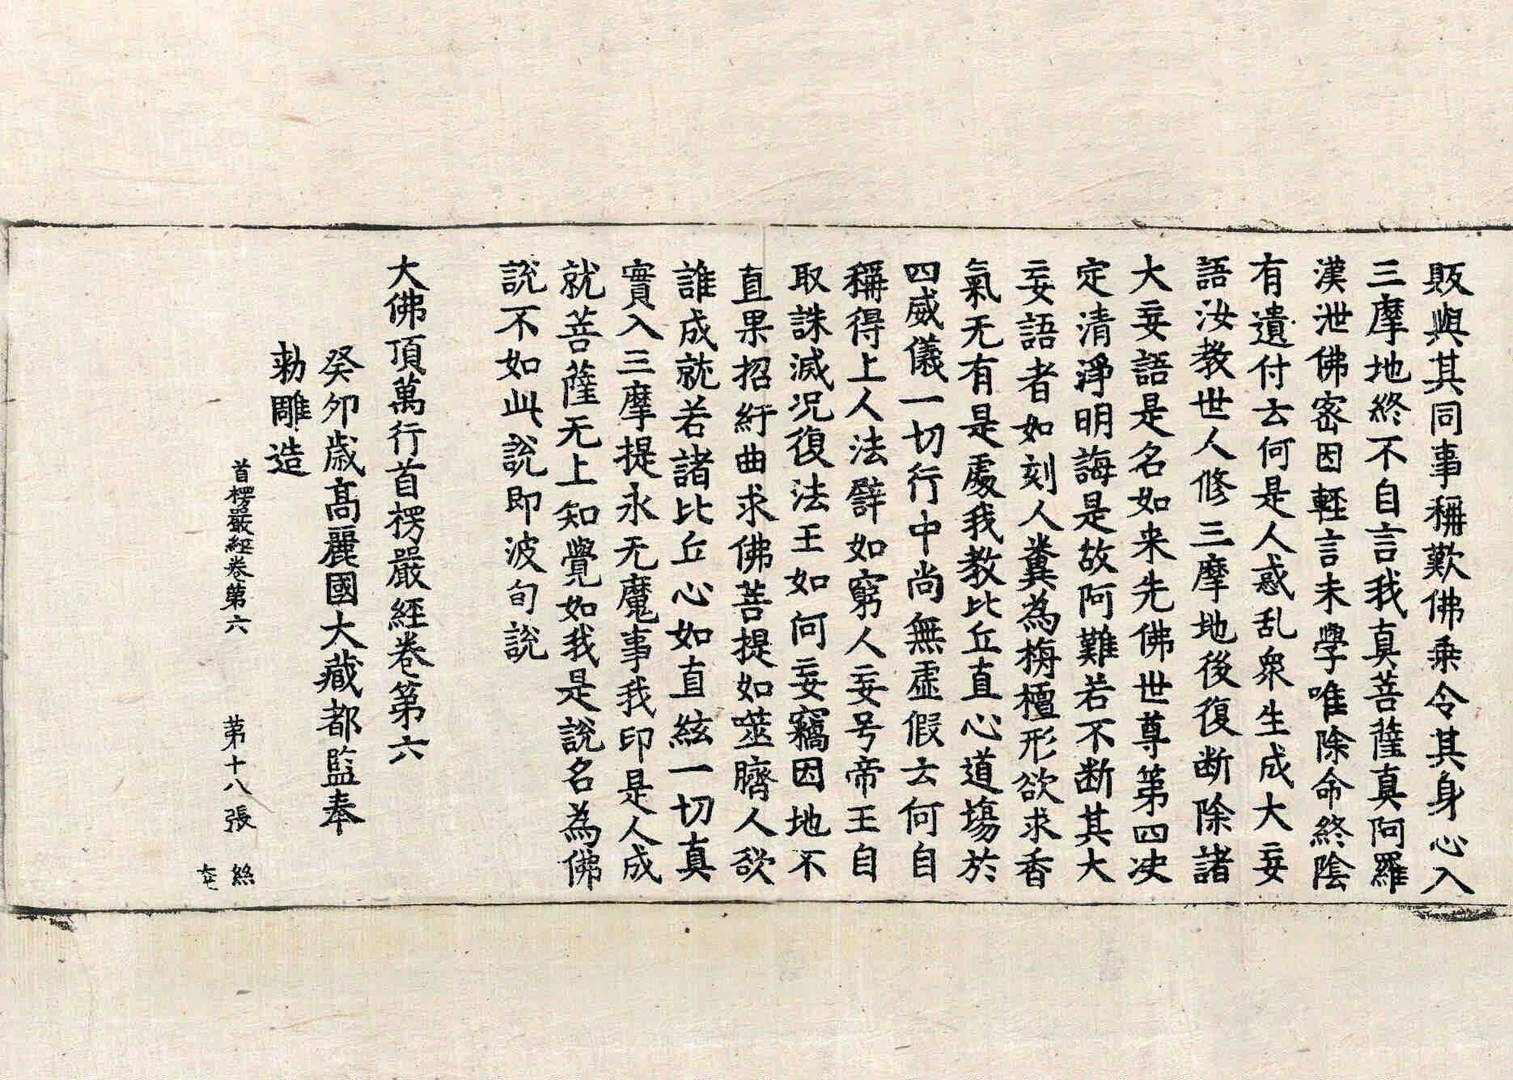 販與其同事稱歎佛乘令其身心入
三摩地終不自言我真菩薩真阿羅
漢泄佛密因輕言未學唯除命終陰
有遺付去何是人惑乱衆生成大妄
語汝教世人修三摩地後復断除諸
大妄語是名如来先佛世尊第四决
定清淨明誨是故阿難若不断其大
妄語者如刻人糞為栴檀形欲求香
氣无有是處我教比丘直心道塲於
四威儀一切行中尚無虛假去何自
稱得上人法譬如窮人妄号帝王自
取誅滅况復法王如何妄竊因地不
直果招紆曲求佛菩提如噬臍人欲
誰成就若諸比丘心如直絃一切真
實入三摩提永无魔事我印是人成
就菩薩无上知覺如我是說名為佛
說不如此說即波旬說
大佛頂萬行首楞嚴經卷第六
癸卯歲髙麗國大藏都監奉
勅雕造
首楞嚴經卷第六 第十八張 絲